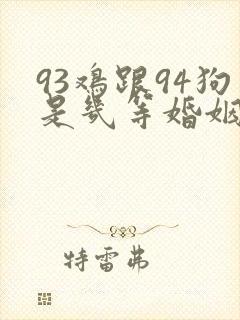 93鸡跟94狗
是几等婚姻
特雷弗